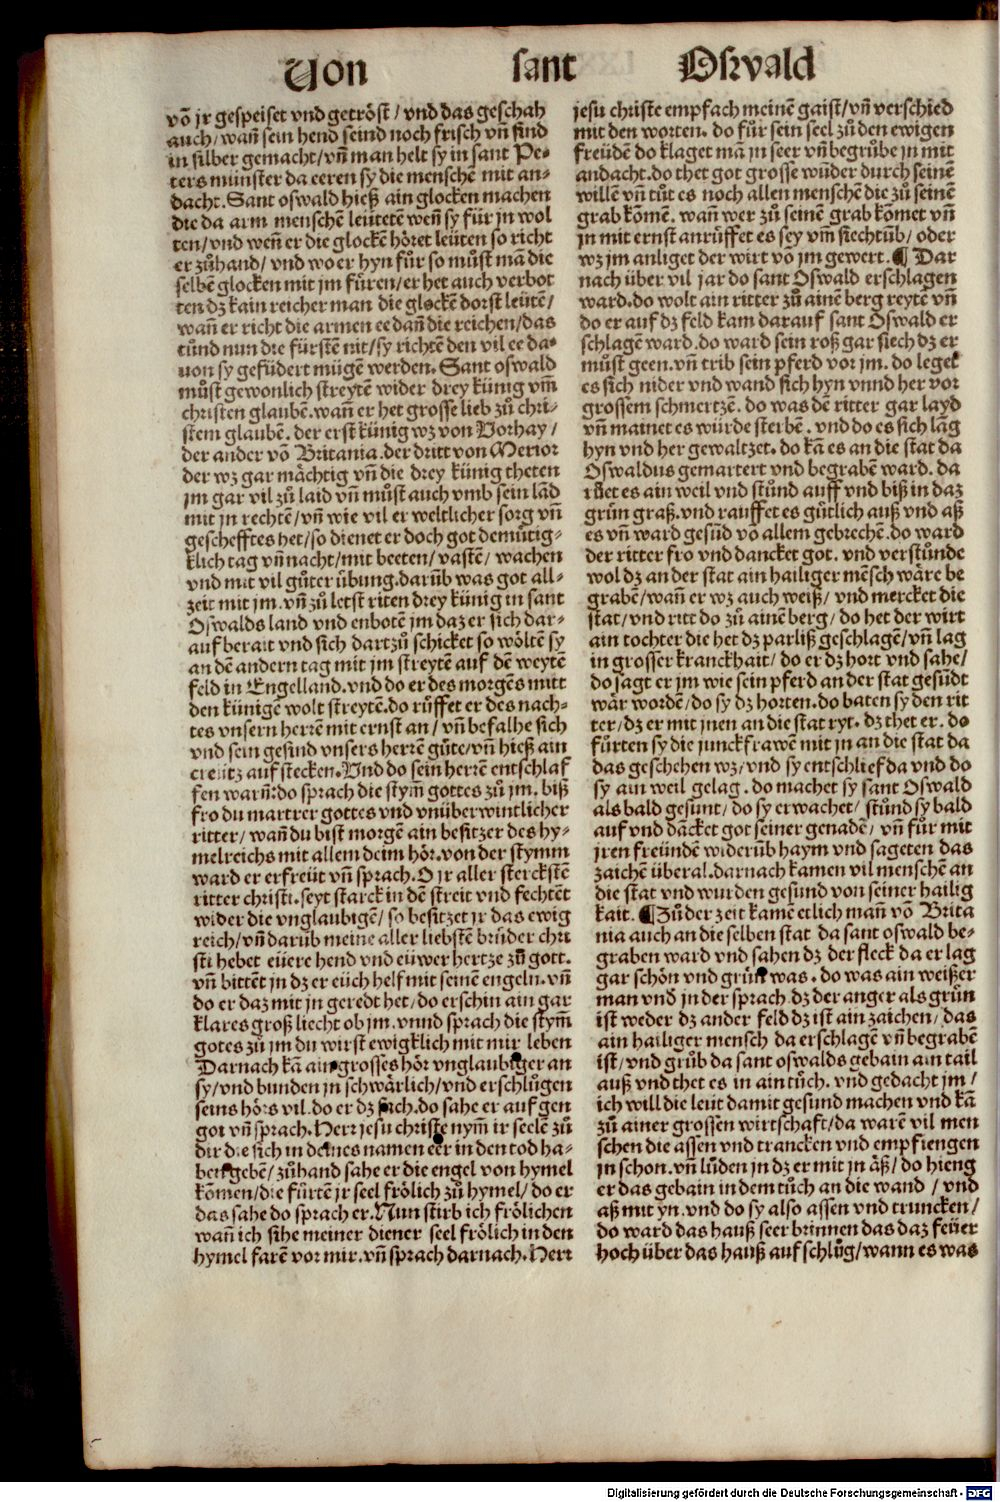 Von sant Oswald
võ jr gespeiset vnd getröst / vnd das geschah
auch / wañ sein hend seind noch frisch vñ sind
in silber gemacht / vñ man helt sy in sant Pe⸗
ters münster da eeren sy die menschẽ mit an⸗
dacht. Sant oswald hieß ain glocken machen
die da arm menschẽ leütetẽ weñ sy für jn wol
ten / vnd weñ er die glockẽ höret leüten so richt
er zůhand / vnd wo er hyn fůr so můst mã die
selbẽ glocken mit jm füren / er het auch verbot
ten dz kain reicher man die glockẽ dorst leütẽ /
wañ er richt die armen ee dañ die reichen / das
tůnd nun die fürstẽ nit / sy richtẽ den vil ee da⸗
uon sy gefüdert mügẽ werden. Sant oswald
můst gewonlich streytẽ wider drey künig vm̃
christen glaubẽ. wañ er het grosse lieb zů chri⸗
stem glaubẽ. der erst künig wz von Vorhay /
der ander võ Britania. der dritt von Merior
der wz gar mächtig vñ die drey künig theten
jm gar vil zů laid vñ můst auch vmb sein lãd
mit jn rechtẽ / vñ wie vil er weltlicher sorg vñ
geschefftes het / so dienet er doch got demütig⸗
klich tag vñ nacht / mit beeten / vastẽ / wachen
vnd mit vil gůter übung. darũb was got all⸗
zeit mit jm. vñ zů letst riten drey künig in sant
Oswalds land vnd enbotẽ im daz er sich dar⸗
auf berait vnd sich dartzů schicket so wöltẽ sy
an dẽ andern tag mit jm streytẽ auf dẽ weytẽ
feld in Engelland. vnd do er des morgẽs mitt
den künigẽ wolt streytẽ. do růffet er des nach⸗
tes vnsern herrẽ mit ernst an / vñ befalhe sich
vnd sein gesind vnsers herrẽ güte / vñ hieß ain
creütz auf stecken. Vnd do sein herrẽ entschlaf
fen warñ: do sprach die stym̃ gottes zů jm. biß
fro du martrer gottes vnd vnüberwintlicher
ritter / wañ du bist morgẽ ain besitzer des hy⸗
melreichs mit allem deim hör. von der stymm
ward er erfreüt vñ sprach. O jr aller sterckstẽ
ritter christi. seyt starck in dẽ streit vnd fechtẽt
wider die vnglaubigẽ / so besitzet jr das ewig
reich / vñ darũb meine aller liebstẽ brüder chri
sti hebet eüere hend vnd eüwer hertze zů gott.
vñ bittẽt jn dz er eüch helf mit seinẽ engeln. vñ
do er daz mit jn geredt het / do erschin ain gar
klares groß liecht ob jm. vnnd sprach die stym̃
gotes zů jm du wirst ewigklich mit mir leben
Darnach kã ain grosses hör vnglaubiger an
sy / vnd bunden jn schwärlich / vnd erschlůgen
seins hörs vil. do er dz sach. do sahe er auf gen
got vñ sprach. Herr jesu christe nym̃ ir seelẽ zů
dir die sich in deines namen eer in den tod ha⸗
ben gebẽ / zůhand sahe er die engel von hymel
kõmen / die fürtẽ jr seel frölich zů hymel / do er
das sahe do sprach er. Nun stirb ich frölichen
wañ ich sihe meiner diener seel frölich in den
hymel farẽ vor mir. vñ sprach darnach. Herr
jesu christe empfach meinẽ gaist / vñ verschied
mit den worten. do fůr sein seel zů den ewigen
freüdẽ do klaget mã jn seer vñ begrůbe jn mit
andacht. do thet got grosse wũder durch seinẽ
willẽ vñ tůt es noch allen menschẽ die zů seinẽ
grab kõmẽ. wañ wer zů seinẽ grab kõmet vñ
jn mit ernst anrüffet es sey vm̃ siechtũb / oder
wz jm anliget der wirt võ jm gewert. ¶ Dar
nach über vil jar do sant Oswald erschlagen
ward. do wolt ain ritter zů ainẽ berg reytẽ vñ
do er auf dz feld kam darauf sant Oswald er
schlagẽ ward. do ward sein roß gar siech dz er
můst geen. vñ trib sein pferd vor jm. do leget
es sich nider vnd wand sich hyn vnnd her vor
grossem schmertzẽ. do was dẽ ritter gar layd
vñ mainet es würde sterbẽ. vnd do es sich lãg
hyn vnd her gewaltzet. do kã es an die stat da
Oswaldus gemartert vnd begrabẽ ward. da
růet es ain weil vnd stůnd auff vnd biß in daz
grün graß. vnd rauffet es gůtlich auß vnd aß
es vñ ward gesũd võ allem gebrechẽ. do ward
der ritter fro vnd dancket got. vnd verstůnde
wol dz an der stat ain hailiger mẽsch wäre be
grabẽ / wañ er wz auch weiß / vnd mercket die
stat / vnd ritt do zů ainẽ berg / do het der wirt
ain tochter die het dz parliß geschlagẽ / vñ lag
in grosser kranckhait / do er dz hort vnd sahe /
do sagt er jm wie sein pferd an der stat gesũdt
wär wordẽ / do sy dz horten. do baten sy den rit
ter / dz er mit jnen an die stat ryt. dz thet er. do
fůrten sy die junckfrawẽ mit jn an die stat da
das geschehen wz / vnd sy entschlief da vnd do
sy ain weil gelag. do machet sy sant Oswald
als bald gesunt / do sy erwachet / stůnd sy bald
auf vnd dãcket got seiner genadẽ / vñ fůr mit
jren freündẽ widerũb haym vnd sageten das
zaichẽ überal. darnach kamen vil menschẽ an
die stat vnd wurden gesund von seiner hailig
kait. ¶ Zů der zeit kamẽ etlich mañ võ Brita
nia auch an die selben stat da sant oswald be⸗
graben ward vnd sahen dz der fleck da er lag
gar schön vnd grün was. do was ain weißer
man vnd jn der sprach. dz der anger als grün
ist weder dz ander feld dz ist ain zaichen / das
ain hailiger mensch da erschlagẽ vñ begrabẽ
ist / vnd grůb da sant oswalds gebain ain tail
auß vnd thet es in ain tůch. vnd gedacht jm /
ich will die leüt damit gesund machen vnd kã
zů ainer grossen wirtschaft / da warẽ vil men
schen die assen vnd trancken vnd empfiengen
jn schon. vñ lůden jn dz er mit jn äß / do hieng
er das gebain in dem tůch an die wand / vnd
aß mit yn. vnd do sy also assen vnd truncken /
do ward das hauß seer brinnen das daz feüer
hoch über das hauß auf schlůg / wann es was
Digitalisierung gefördert durch die Deutsche Forschungsgemeinschaft - DFG